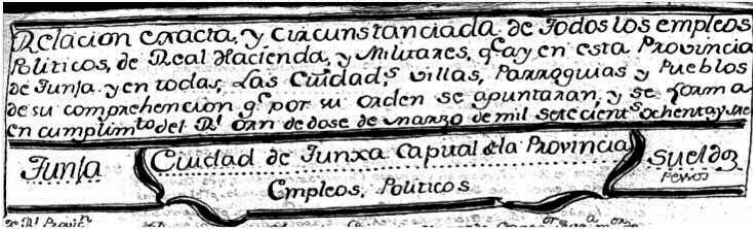 Relacion exacta, y circunstanciada de Todos los empleos
Politicos, de Real Hacienda, y Militares, q.e ay en esta Provincia
de Tunja. y en todas, Las Cuidad,s villas, Parroquias y Pueblos
de su comprehencion q.e por su orden se apuntaran, y se forma
en cumplim.to del R.l orn de dose de marzo de mil setecient.s ochenta y
Tunja
Ciudad de Tunxa Capital de la Provincia
Empleos, Politicos
Sueldos
Pesos